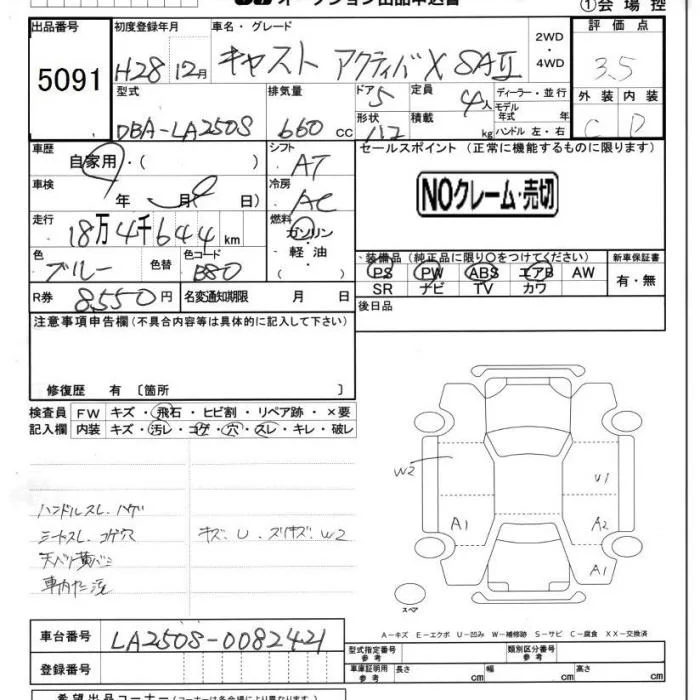 オークション出品申込書
①会場控
出品番号 初度登録年月 車名・グレード 評価点
5091
H28 12月 キャスト アクティバX SAⅡ
2WD
・4WD
3.5
型式 排気量 ドア 5 定員 4人 ディーラー・並行 外装 内装
DBA-LA250S 660cc
形状 積載 kg
モデル年式 年
ハンドル 左・右
C D
車歴 シフト セールスポイント（正常に機能するものに限ります）
自家用・（ ） AT
車検 冷房
年 月 日） AC
NOクレーム・売切
走行 燃料
18万4千644km ガソリン
・軽油
・（ ）
色 色替 色コード
ブルー B80
・装備品（純正品に限り○をつけてください） 新車保証書
PS PW ABS エアB AW
SR ナビ TV カワ
有・無
R券 8,550円 名変通知期限 月 日
後日品
注意事項申告欄（不具合内容等は具体的に記入して下さい）
修復歴 有〔箇所 〕
検査員 FW キズ・飛石・ヒビ割・リペア跡・×要
記入欄 内装 キズ・汚レ・コゲ・穴・スレ・キレ・破レ
ハンドルスレ.ハゲ
シートスレ.コゲ穴
キズ.U.スリキズ.W2
W2
U1
A1
A2
A1
スペア
A－キズ E－エクボ U－凹み W－補修跡 S－サビ C－腐食 XX－交換済
車台番号 LA250S-0082421
型式指定番号 参考 類別区分番号 参考
登録番号
車庫証明用 参考 長さ cm 幅 cm 高さ cm
希望出品コーナー